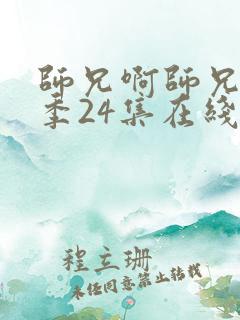 師兄啊師兄
季24集在綫
程立珊
未经同意禁止转载